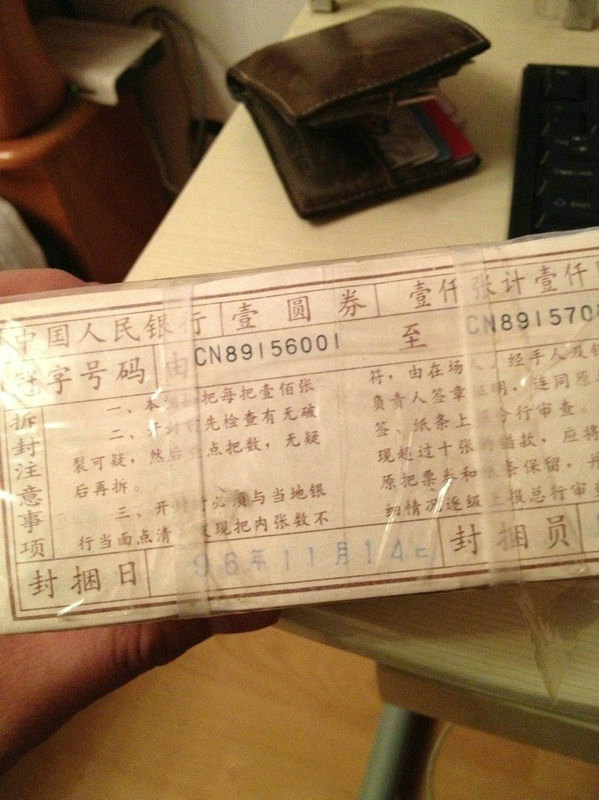 中国人民银行 壹圆券 壹仟张计壹仟
冠字号码 由CN89156001 至 CN891570
拆封注意事项
一、本 把每把壹佰张
二、开封前先检查有无破
裂可疑，然后 点把数，无疑
后再拆。
三、开封时必须与当地银
行当面点清 发现把内张数不
符，由在场人 经手人及
负责人签章证明，连同原
签、纸条上 分行审查。
现超过十张的错款，应将
原把票券和 条保留，并
细情况逐级上报总行审查
封捆日 96年11月14日 封捆员